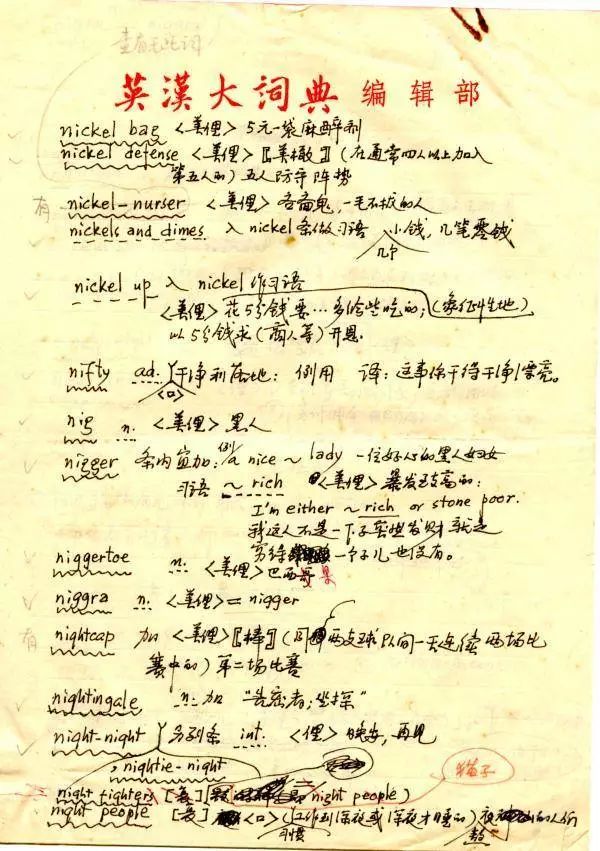 查有无此词
英漢大词典 编辑部
nickel bag <美俚> 5元一袋麻醉剂
nickel defense <美俚>〖美橄〗(在通常四人以上加入
第五人的)五人防守阵势
有 nickel-nurser <美俚> 吝啬鬼,一毛不拔的人
nickels and dimes 入 nickel 条做习语 小钱,几笔零钱
nickel up 入 nickel 作习语
<美俚> 花5分钱要…多给些吃的;(象征性地)
以5分钱求(商人等)开恩
nifty ad. <口> 干净利落地: 例用 译: 这事你干得干净漂亮。
nig n. <美俚> 黑人
nigger 条内宜加: 例 a nice ~ lady 一位好心的黑人妇女
习语 ~ rich <美俚> 暴发致富的:
I'm either ~ rich or stone poor.
我这人不是一下子突然发财就是
穷得一个子儿也没有。
niggertoe n. <美俚> 巴西果
niggra n. <美俚> = nigger
有 nightcap 加 <美俚>〖棒〗(同两支球队间一天连续两场比
赛中的)第二场比赛
nightingale n. 加 "告密者;坐探"
night-night 另列条 int. <俚> 晚安,再见
, nightie-night
night fighters [美] night people) 猫子
night people [美] <口> (习惯工作到深夜或深夜才睡的) 夜的人们